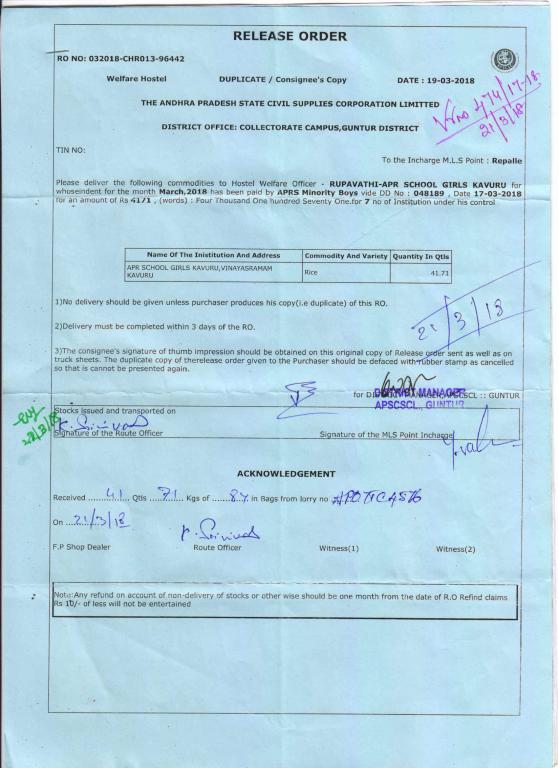 RELEASE ORDER
RO NO: 032018-CHR013-96442
Welfare Hostel DUPLICATE / Consignee's Copy DATE : 19-03-2018
474/17-18
21/3/18
THE ANDHRA PRADESH STATE CIVIL SUPPLIES CORPORATION LIMITTED
DISTRICT OFFICE: COLLECTORATE CAMPUS,GUNTUR DISTRICT
TIN NO:
To the Incharge M.L.S Point : Repalle
Please deliver the following commodities to Hostel Welfare Officer - RUPAVATHI-APR SCHOOL GIRLS KAVURU for
whoseindent for the month March,2018 has been paid by APRS Minority Boys vide DD No : 048189 , Date 17-03-2018
for an amount of Rs 4171 , (words) : Four Thousand One hundred Seventy One.for 7 no of Institution under his control
Name Of The Inistitution And Address Commodity And Variety Quantity In Qtls
APR SCHOOL GIRLS KAVURU,VINAYASRAMAM
KAVURU Rice 41.71
1)No delivery should be given unless purchaser produces his copy(i.e duplicate) of this RO.
21/3/18
2)Delivery must be completed within 3 days of the RO.
3)The consignee's signature of thumb impression should be obtained on this original copy of Release order sent as well as on
truck sheets. The duplicate copy of therelease order given to the Purchaser should be defaced with rubber stamp as cancelled
so that is cannot be presented again.
for DISTRICT MANAGER, APSCSCL :: GUNTUR
DISTRICT MANAGER
APSCSCL., GUNTUR
Stocks issued and transported on
K. Srinivas
Signature of the Route Officer Signature of the MLS Point Incharge
ACKNOWLEDGEMENT
Received ....41.... Qtls ....71.... Kgs of ....84.... in Bags from lorry no
On ....21/3/18
K. Srinivas
F.P Shop Dealer Route Officer Witness(1) Witness(2)
Note:Any refund on account of non-delivery of stocks or other wise should be one month from the date of R.O Refind claims
Rs 10/- of less will not be entertained